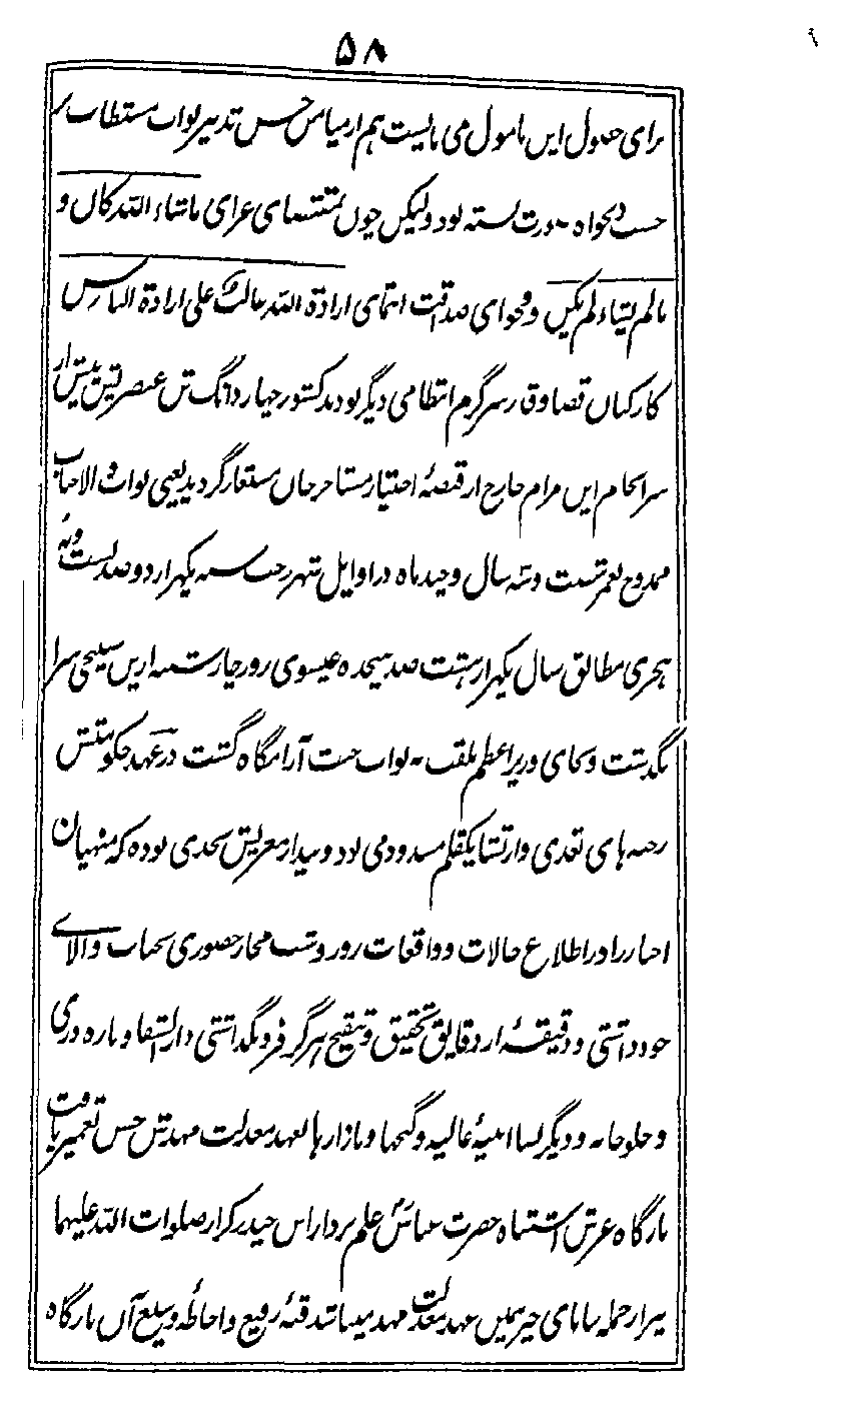 ۵۸
برای حصول این مامول می بایست هم از میامن حسن تدبیر نواب مستطاب
حسب دلخواه صورت بسته بود ولیکن چون بمقتضای غرای ماشاء الله کان و
مالم یشاء لم یکن و فحوای صداقت انتمای ارادة الله غالبة علی ارادة الناس
کارکنان قضا و قدر سرگرم انتظامی دیگر بودند کشور چهار دانگ تن عنصریش پیش از
سرانجام این مرام خارج از قبضهٔ اختیار مستاجر جان مستعار گردید یعنی نواب والاجناب
ممدوح بعمر شصت و سه سال و چند ماه در اوایل شهر رجب سنه یکهزار دو صد بیست و نه
هجری مطابق سال یکهزار هشت صد چهارده عیسوی روز چارشنبه ازین سپنجی سرا
بگذشت و بجای وزیر اعظم ملقب به نواب جنت آرامگاه گشت در عهد حکومتش
رخنه های تعدی و ارتشا یکقلم مسدود می بود و بیدار مغزیش بحدی بوده که منهیان
اخبار را در اطلاع حالات و واقعات روز و شب مجاز حضوری بجناب والای
خود داشتی و دقیقهٔ از دقایق تحقیق و تنقیح هرگز فرو نگذاشتی دار الشفا و باره دری
و جلوخانه و دیگر بسا ابنیهٔ عالیه و گنجها و بازارها بعهد معدلت مهدش حسن تعمیر یافت
بارگاه عرش اشتباه حضرت عباس علم بردار ابن حیدر کرار صلوات الله علیهما
نیز از جمله بناهای خیر همین عهد معدلت مهد میباشد قبهٔ رفیع و احاطهٔ وسیع آن بارگاه